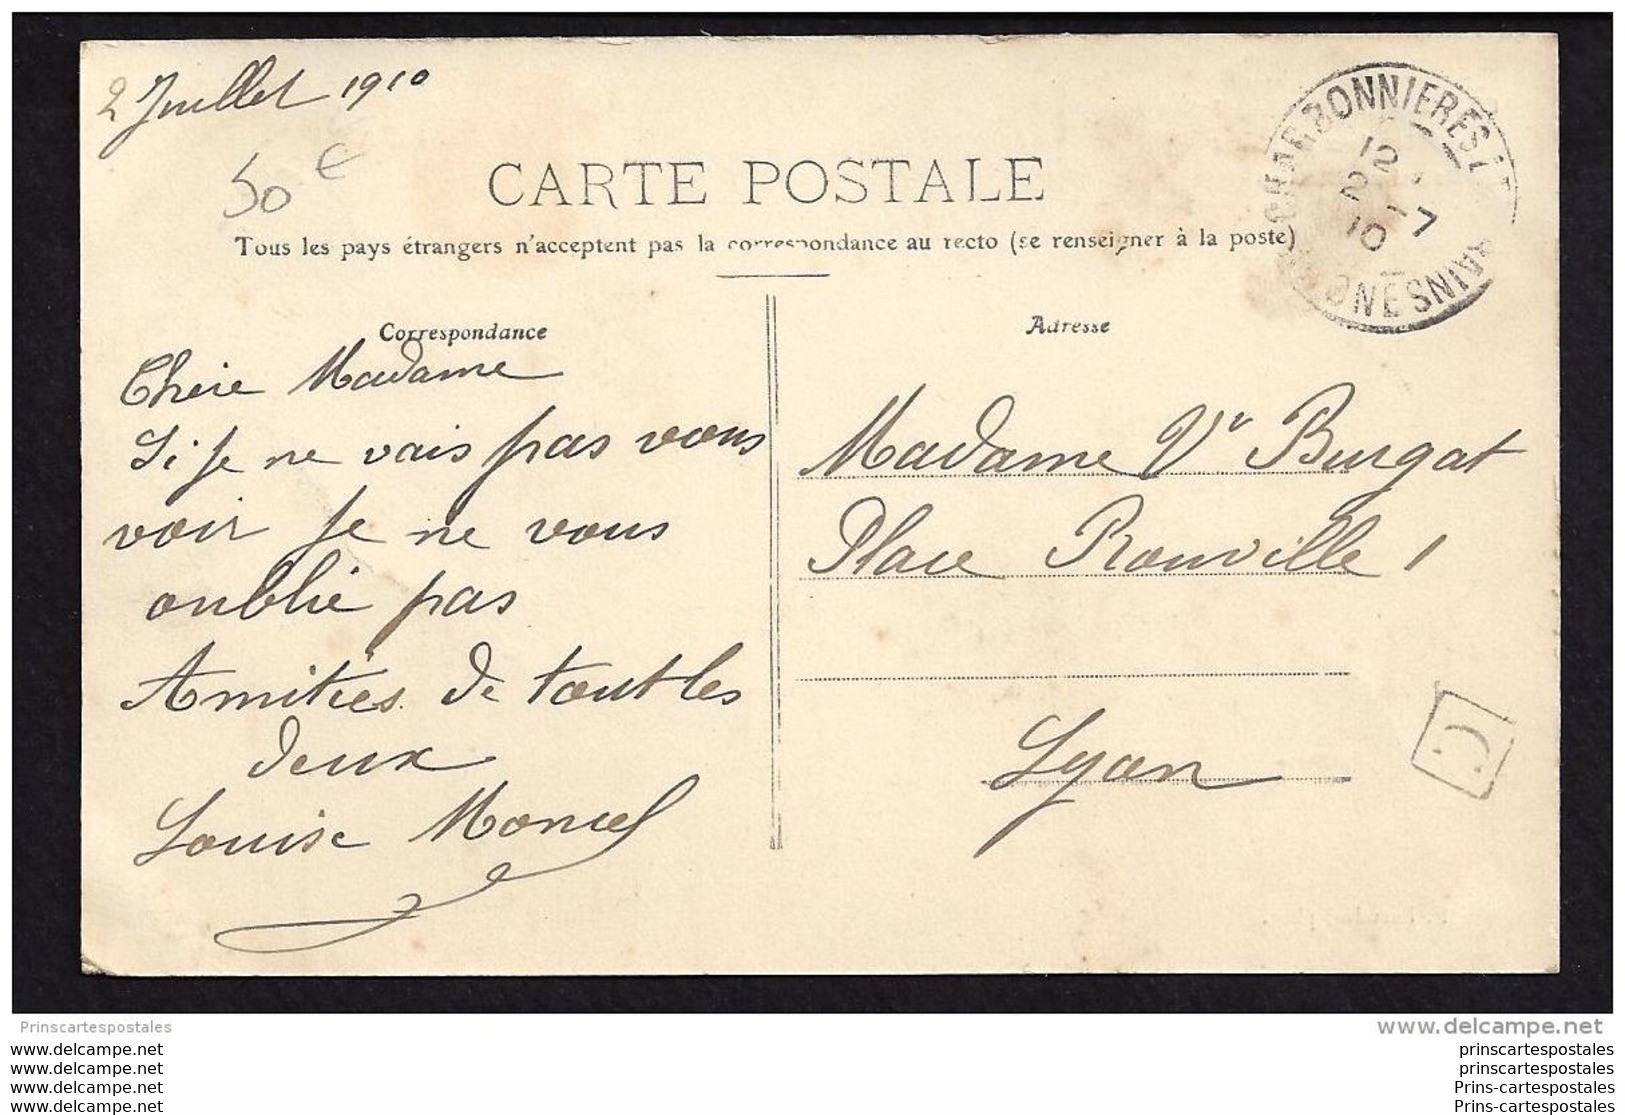 2 Juillet 1910
50 €
CARTE POSTALE
Tous les pays étrangers n'acceptent pas la correspondance au recto (se renseigner à la poste)
CHARBONNIERES L
12
2 - 7
10
BAINS
Correspondance
Chère Madame
Si je ne vais pas vous
voir je ne vous
oublie pas
Amitiés de toutles
deux
Louise Moncel
Adresse
Madame Vve Burgat
Place Rouville 1
Lyon
C
Prinscartespostales
www.delcampe.net
www.delcampe.net
www.delcampe.net
www.delcampe.net
www.delcampe.net
prinscartespostales
prinscartespostales
Prins-cartespostales
Prins-cartespostales